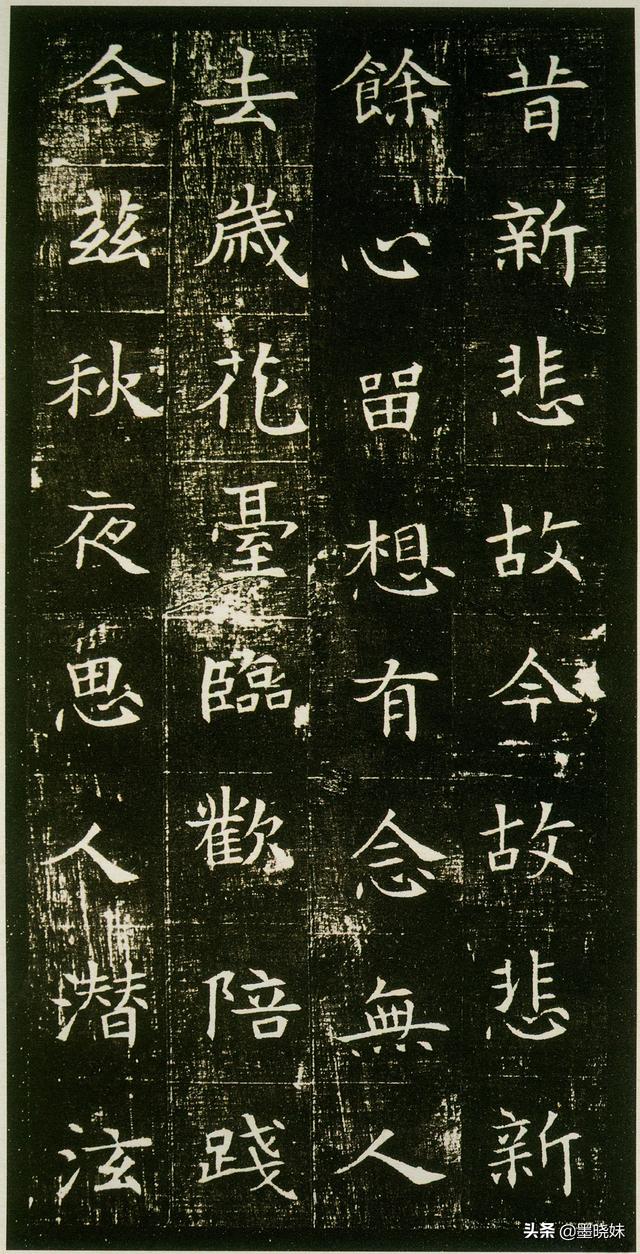 昔新悲故今故悲新
餘心留想有念無人
去歲花臺臨歡陪踐
今茲秋夜思人潛泫
头条 @墨晓妹